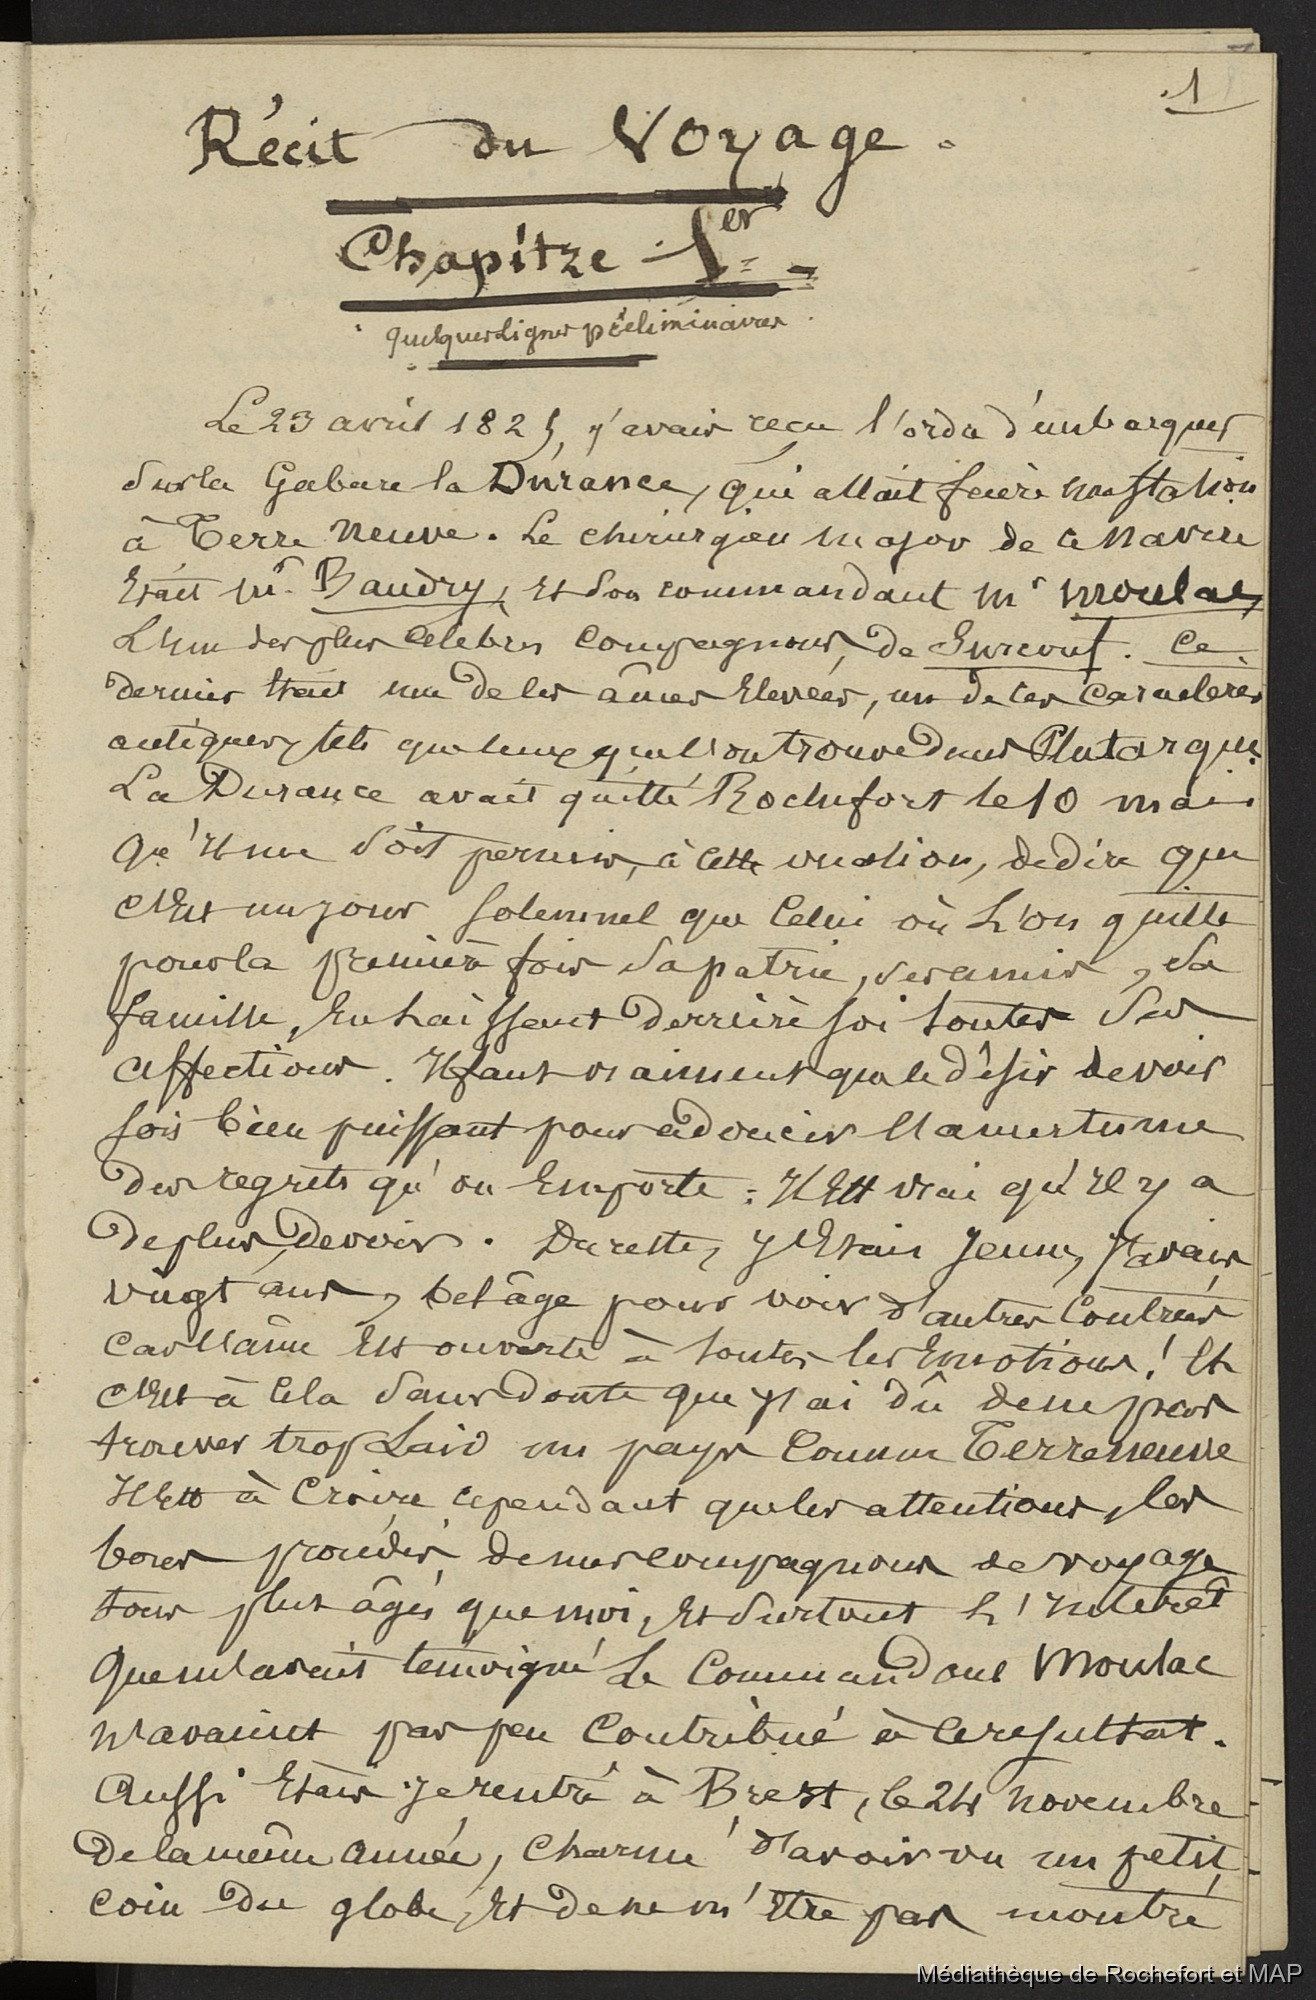 1
Récit du Voyage.
Chapitre 1er
quelques Lignes préliminaires
Le 23 avril 1825, j'avais reçu l'ordre d'embarquer
sur la Gabare la Durance, qui allait faire une station
à Terre Neuve. Le chirurgien major de ce navire
Etait mr. Baudry, et son commandant mr moulac,
L'un des plus célèbres compagnons, de Surcouf. Ce
dernier Etait une de ces âmes Elevées, un de ces caractères
antiques, tels que ceux que l'on trouve dans Plutarque.
La Durance avait quitté Rochefort le 10 mai
Qu'il me soit permis, à cette occasion, de dire que
c'est un jour solennel que celui où L'on quitte
pour la première fois sa patrie, ses amis, sa
famille, En Laissant derrière soi toutes ses
affections. Il faut vraiment que le désir de voir
soit bien puissant pour adoucir l'amertume
des regrets qu'on Emporte : Il Est vrai qu'Il y a
de plus, devoir. Du reste, j'Etais jeune, j'avais
vingt ans, bel âge pour voir d'autres contrées
car l'âme Est ouverte à toutes les Emotions ! Et
c'Est à cela sans doute que j'ai dû de ne pas
trouver trop Laid un pays comme Terreneuve
Il Est à croire cependant que les attentions, les
bons procédés de mes compagnons de voyage
tous plus âgés que moi, Et surtout L'Interêt
que m'avait témoigné Le Commandant Moulac
n'avaient pas peu contribué à ce resultat.
Aussi Etais je rentré à Brest, le 24 novembre
De la même année, charmé d'avoir vu un petit
coin du globe, Et de ne m'Etre pas montré
Médiathèque de Rochefort et MAP